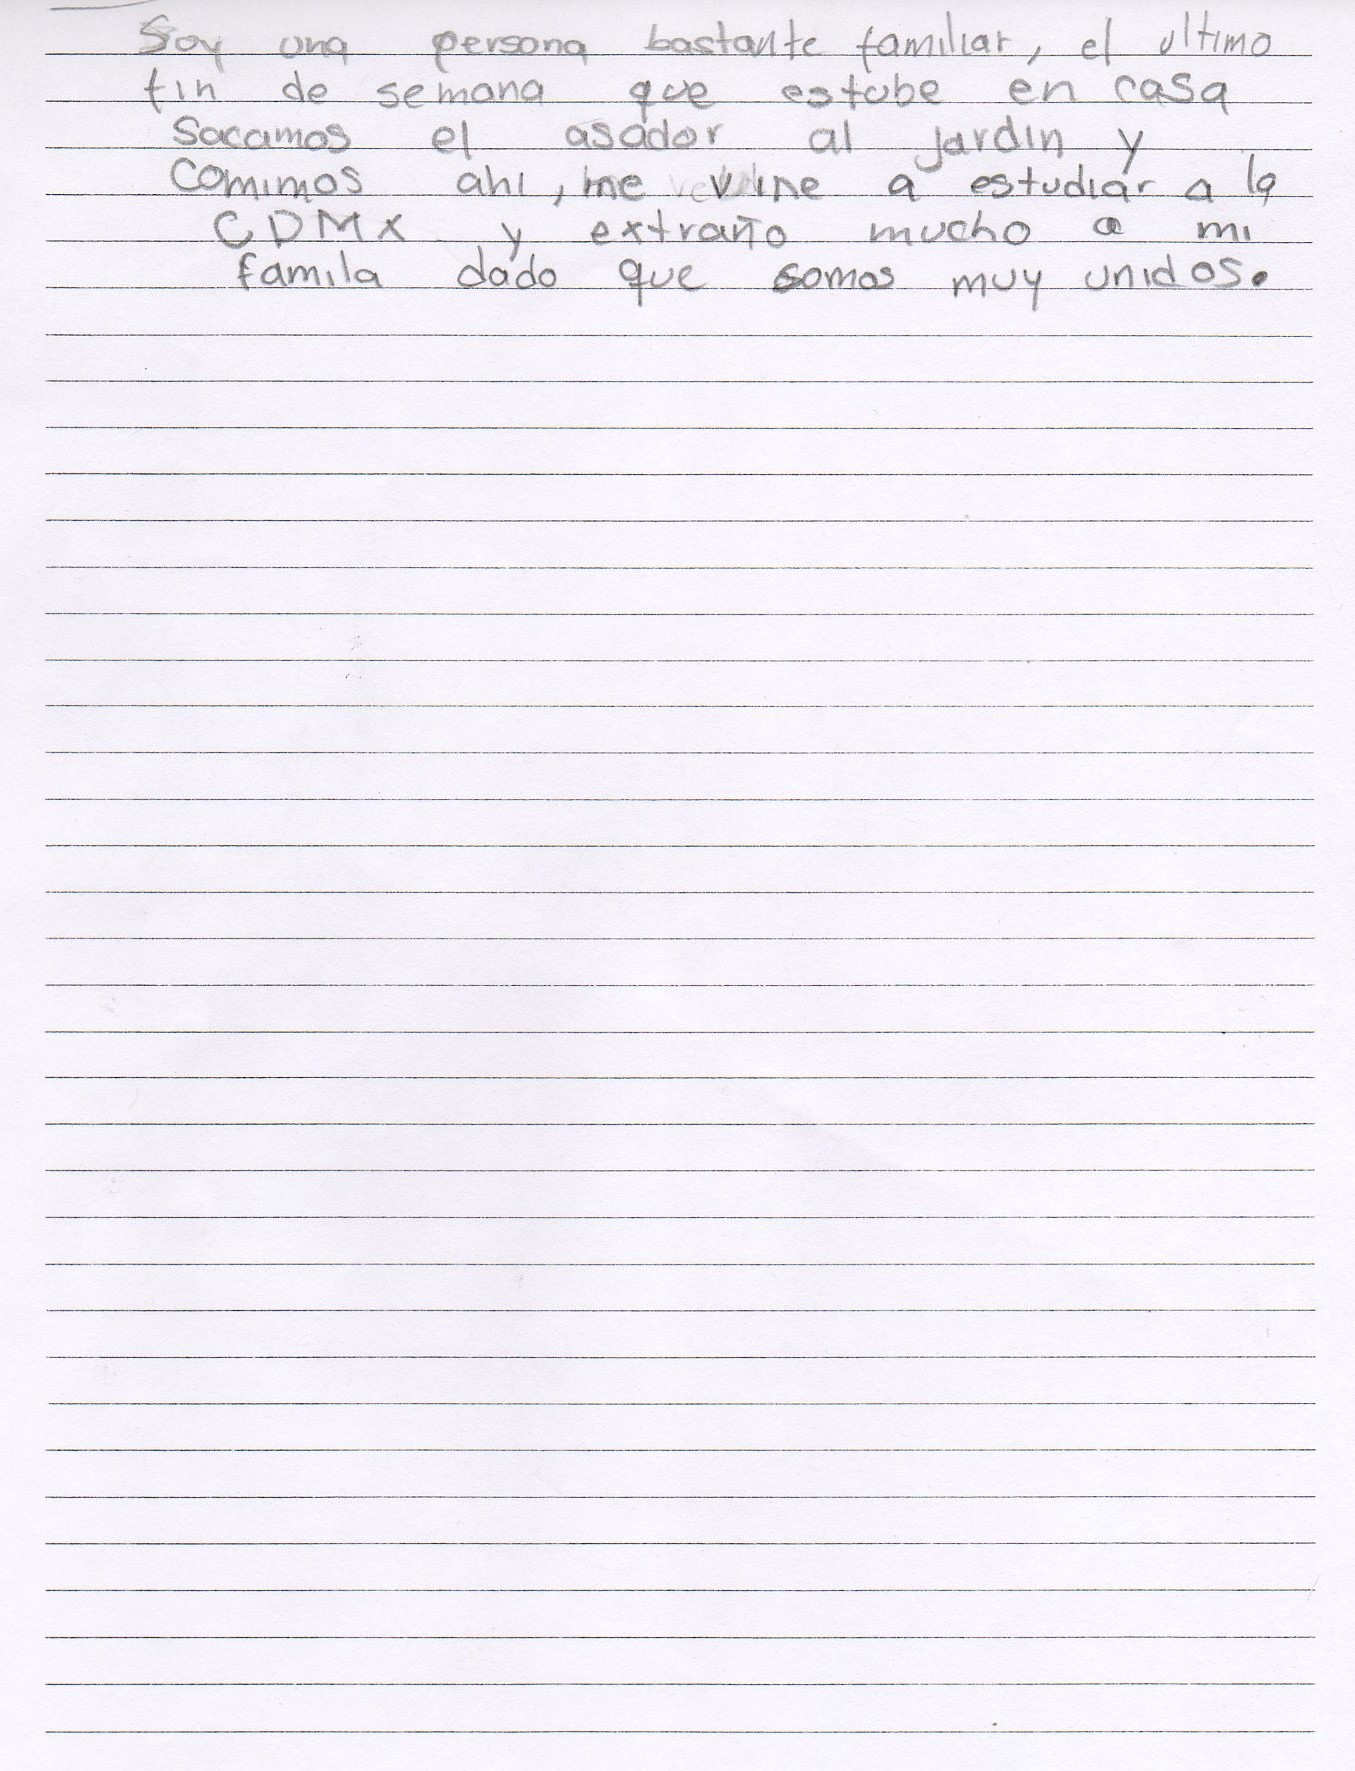 Soy una persona bastante familiar, el ultimo
fin de semana que estube en casa
Sacamos el asador al jardin y
Comimos ahi, me vine a estudiar a la
CDMX y extraño mucho a mi
famila dado que somos muy unidos.